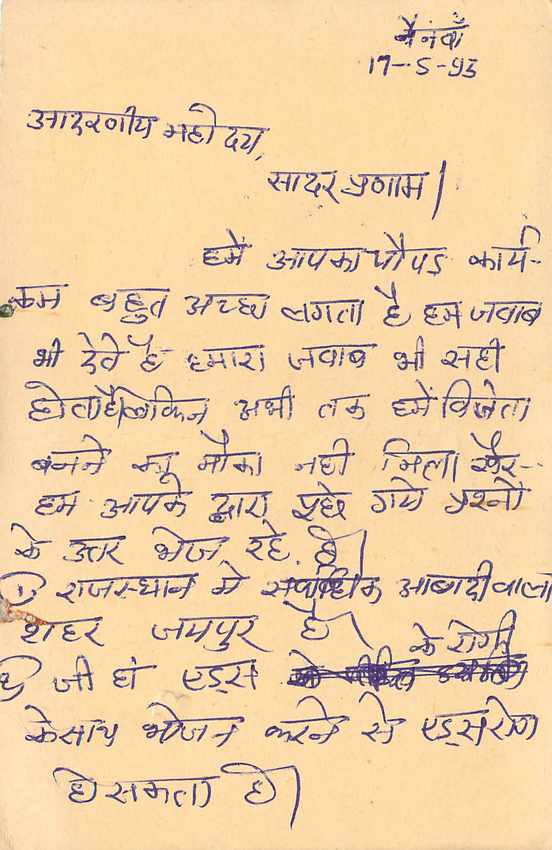 नैनवाँ
17-5-95
आदरणीय महोदय,
सादर प्रणाम।
हमें आपका चौपड़ कार्य-
क्रम बहुत अच्छा लगता है हम जवाब
भी देते है हमारा जवाब भी सही
होता है लेकिन अभी तक हमें विजेता
बनने का मौका नही मिला खैर-
हम आपके द्वारा पूछे गये प्रश्नो
के उत्तर भेज रहे है।
① राजस्थान मे सर्वाधिक आबादी वाला
शहर जयपुर है।
② जी हां एड्स के रोगी
के साथ भोजन करने से एड्स रोग
हो सकता है।